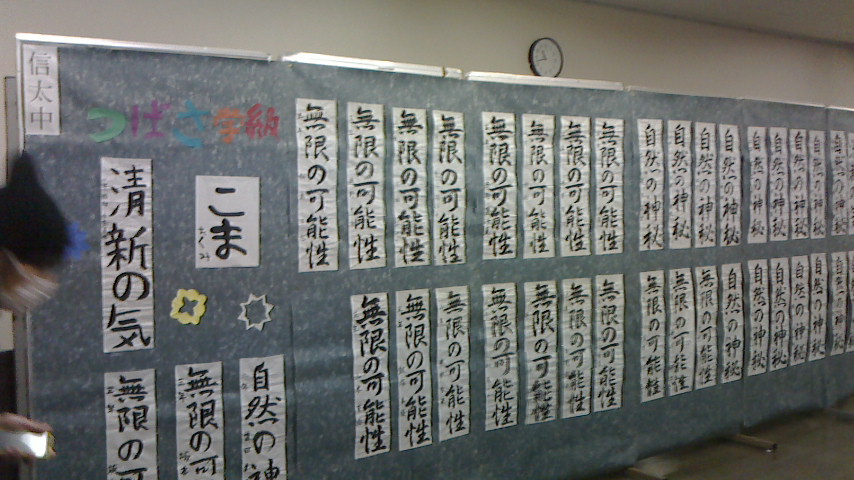 信太中
つばさ学級
清新の気
こま
無限の可
無限の可
自然の神
無限の可能性
無限の可能性
無限の可能性
無限の可能性
無限の可能性
無限の可能性
無限の可能性
無限の可能性
自然の神秘
自然の神秘
自然の神秘
自然の神秘
自然の神秘
自然の神秘
自然の神秘
自然の神秘
自然の神秘
無限の可能性
無限の可能性
無限の可能性
無限の可能性
無限の可能性
無限の可能性
無限の可能性
無限の可能性
無限の可能性
無限の可能性
自然の神秘
自然の神秘
自然の神秘
自然の神秘
自然の神秘
自然の神秘